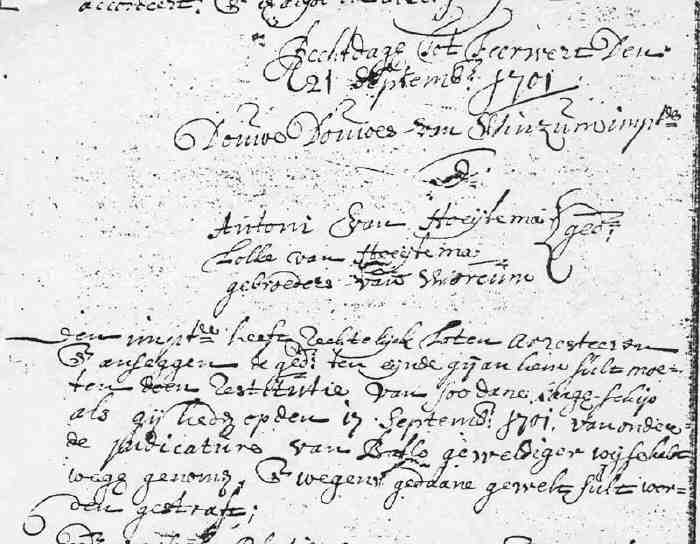 accordeert.
Rechtdage tot Ferwert Den
21 Septemb: 1701
Douwe Douwes van Winzum imp.tes
Antoni van Hoeijtema ged:
Lolle van Hoeijtema
gebroeders van Worcum
den imp.tes heeft Rechtelijck Laten arresteeren
& anseggen te ged: ten einde gij an hem sult moe-
ten doen Restitutie van soodane jage-schip
als gij lieden op den 17 Septemb: 1701 van onder
de judicature van geweldiger wijse hebt
wege genomen, & wegens gedaane gewelt sult wor-
den gestraft;